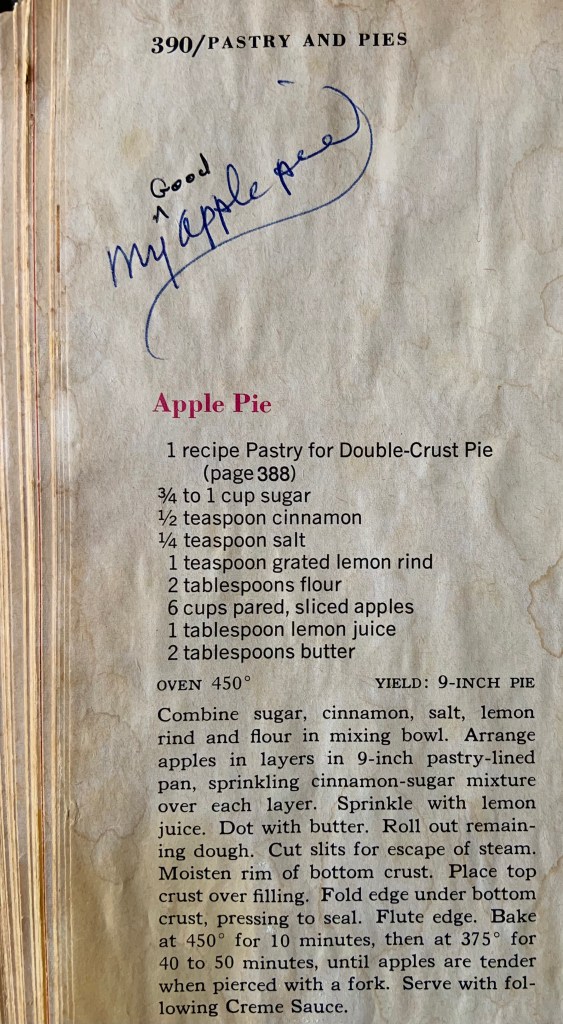 390/PASTRY AND PIES
Good
^
My apple pie
Apple Pie
1 recipe Pastry for Double-Crust Pie
(page 388)
¾ to 1 cup sugar
½ teaspoon cinnamon
¼ teaspoon salt
1 teaspoon grated lemon rind
2 tablespoons flour
6 cups pared, sliced apples
1 tablespoon lemon juice
2 tablespoons butter
OVEN 450° YIELD: 9-INCH PIE
Combine sugar, cinnamon, salt, lemon
rind and flour in mixing bowl. Arrange
apples in layers in 9-inch pastry-lined
pan, sprinkling cinnamon-sugar mixture
over each layer. Sprinkle with lemon
juice. Dot with butter. Roll out remain-
ing dough. Cut slits for escape of steam.
Moisten rim of bottom crust. Place top
crust over filling. Fold edge under bottom
crust, pressing to seal. Flute edge. Bake
at 450° for 10 minutes, then at 375° for
40 to 50 minutes, until apples are tender
when pierced with a fork. Serve with fol-
lowing Creme Sauce.